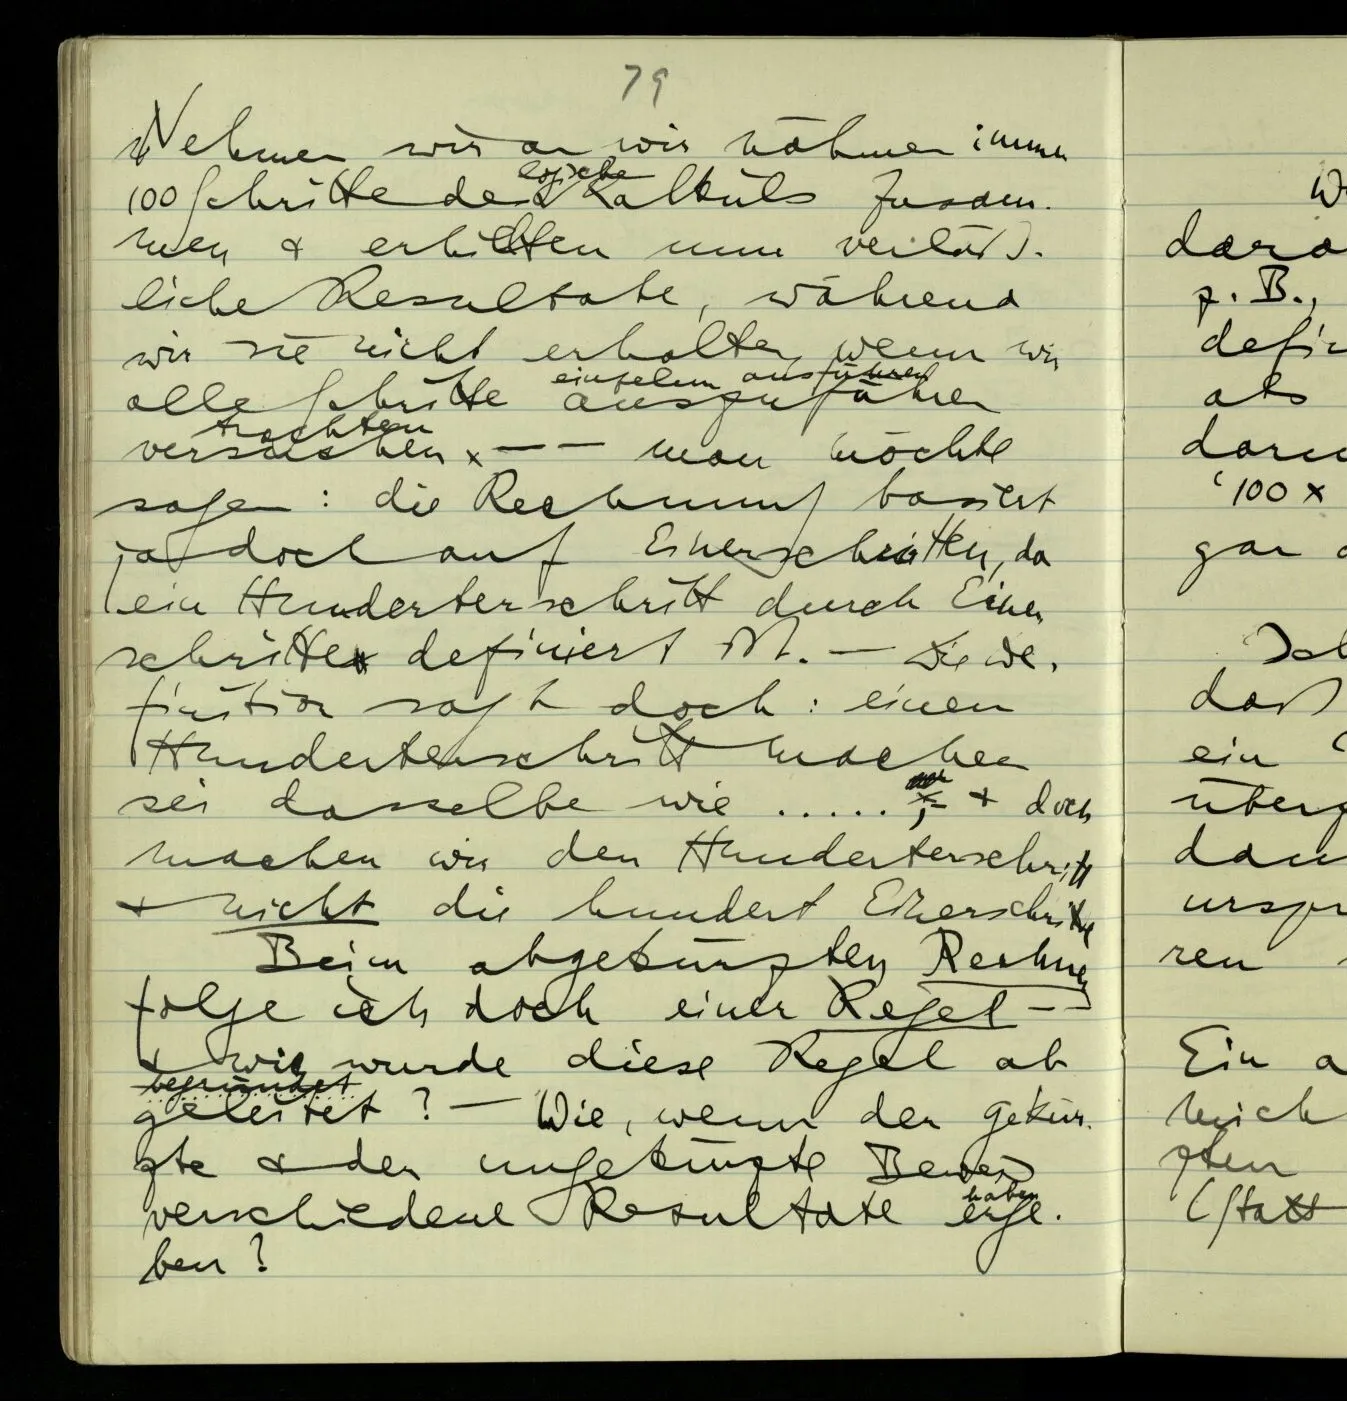 79
Nehmen wir an wir nähmen immer
logische
100 Schritte des Kalküls zusam-
men & erhielten nun verläß-
liche Resultate, während
wir sie nicht erhalten wenn wir
einzeln auszuführen
alle Schritte auszuführen
trachten
versuchen. – – man möchte
sagen: die Rechnung basiert
ja doch auf Einerschritten, da
ein Hunderterschritt durch Einer
schritte definiert ist. – Die De-
finition sagt doch: einen
Hunderterschritt machen
sei dasselbe wie ....., & doch
machen wir den Hunderterschritt
& nicht die hundert Einerschritte
Beim abgekürzten Rechnen
folge ich doch einer Regel – –
& wie wurde diese Regel ab
begründet
geleitet? – Wie, wenn der gekür-
zte & der ungekürzte Beweis
haben
verschiedene Resultate erge-
ben?
dar
z. B.,
defin
als
'100 x
gar
daß
ein
überg
dan
urspr
ren
Ein a
mich
zten
(statt